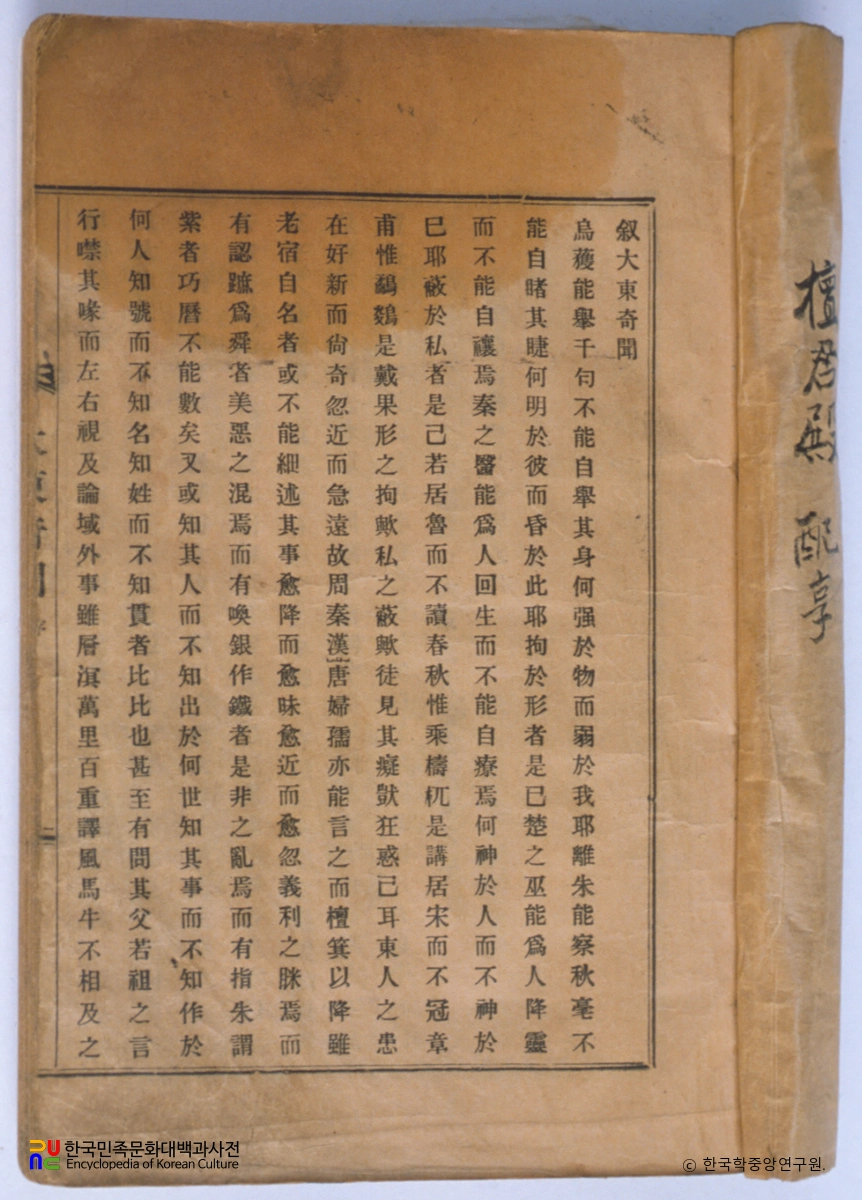 檀君殿 配享
叙大東奇聞
烏獲能擧千勻不能自擧其身何强於物而弱於我耶離朱能察秋毫不
能自睹其睫何明於彼而昏於此耶拘於形者是已楚之巫能爲人降靈
而不能自禳焉秦之醫能爲人回生而不能自療焉何神於人而不神於
已耶蔽於私者是已若居魯而不讀春秋惟乘檮杌是講居宋而不冠章
甫惟是戴果形之拘歟私之蔽歟徒見其癡獃狂惑已耳東人之患
在好新而尙奇忽近而急遠故周秦漢唐婦孺亦能言之而檀箕以降雖
老宿自名者或不能細述其事愈降而愈昧愈近而愈忽義利之眯焉而
有認蹠爲舜者美惡之混焉而有喚銀作鐵者是非之亂焉而有指朱謂
紫者巧曆不能數矣又或知其人而不知出於何世知其事而不知作於
何人知號而不知名知姓而不知貫者比比也甚至有問其父若祖之言
行噤其喙而左右視及論域外事雖層溟萬里百重譯風馬牛不相及之
한국민족문화대백과사전
Encyclopedia of Korean Culture
ⓒ 한국학중앙연구원.